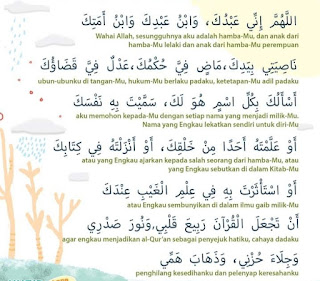 اللَّهُمَّ إِنِّي عَبْدُكَ، وَابْنُ عَبْدِكَ وَابْنُ أَمَتِكَ
Wahai Allah, sesungguhnya aku adalah hamba-Mu, dan anak dari
hamba-Mu lelaki dan anak dari hamba-Mu perempuan
نَاصِيَتِي بِيَدِكَ،مَاضٍ فِيَّ حُكْمُكَ،عَدْلٌ فِيَّ قَضَاؤُكَ
ubun-ubunku di tangan-Mu, hukum-Mu berlaku padaku, ketetapan-Mu adil padaku
أَسْأَلُكَ بِكُلِّ اسْمٍ هُوَ لَكَ، سَمَّيْتَ بِهِ نَفْسَكَ
aku memohon kepada-Mu dengan setiap nama yang menjadi milik-Mu.
Nama yang Engkau lekatkan sendiri untuk diri-Mu
أَوْ عَلَّمْتَهُ أَحَدًا مِنْ خَلْقِكَ، أَوْ أَنْزَلْتَهُ فِي كِتَابِكَ
atau yang Engkau ajarkan kepada salah seorang dari hamba-Mu, atau
yang Engkau sebutkan di dalam Kitab-Mu
أَوْ اسْتَأْثَرْتَ بِهِ فِي عِلْمِ الْغَيْبِ عِنْدَكَ
atau Engkau sembunyikan di dalam ilmu gaib milik-Mu
أَنْ تَجْعَلَ الْقُرْآنَ رَبِيعَ قَلْبِي،وَنُورَ صَدْرِي
agar engkau menjadikan al-Qur'an sebagai penyejuk hatiku, cahaya dadaku
وَجِلَاءَ حُزْنِي، وَذَهَابَ هَمِّي
penghilang kesedihanku dan pelenyap keresahanku